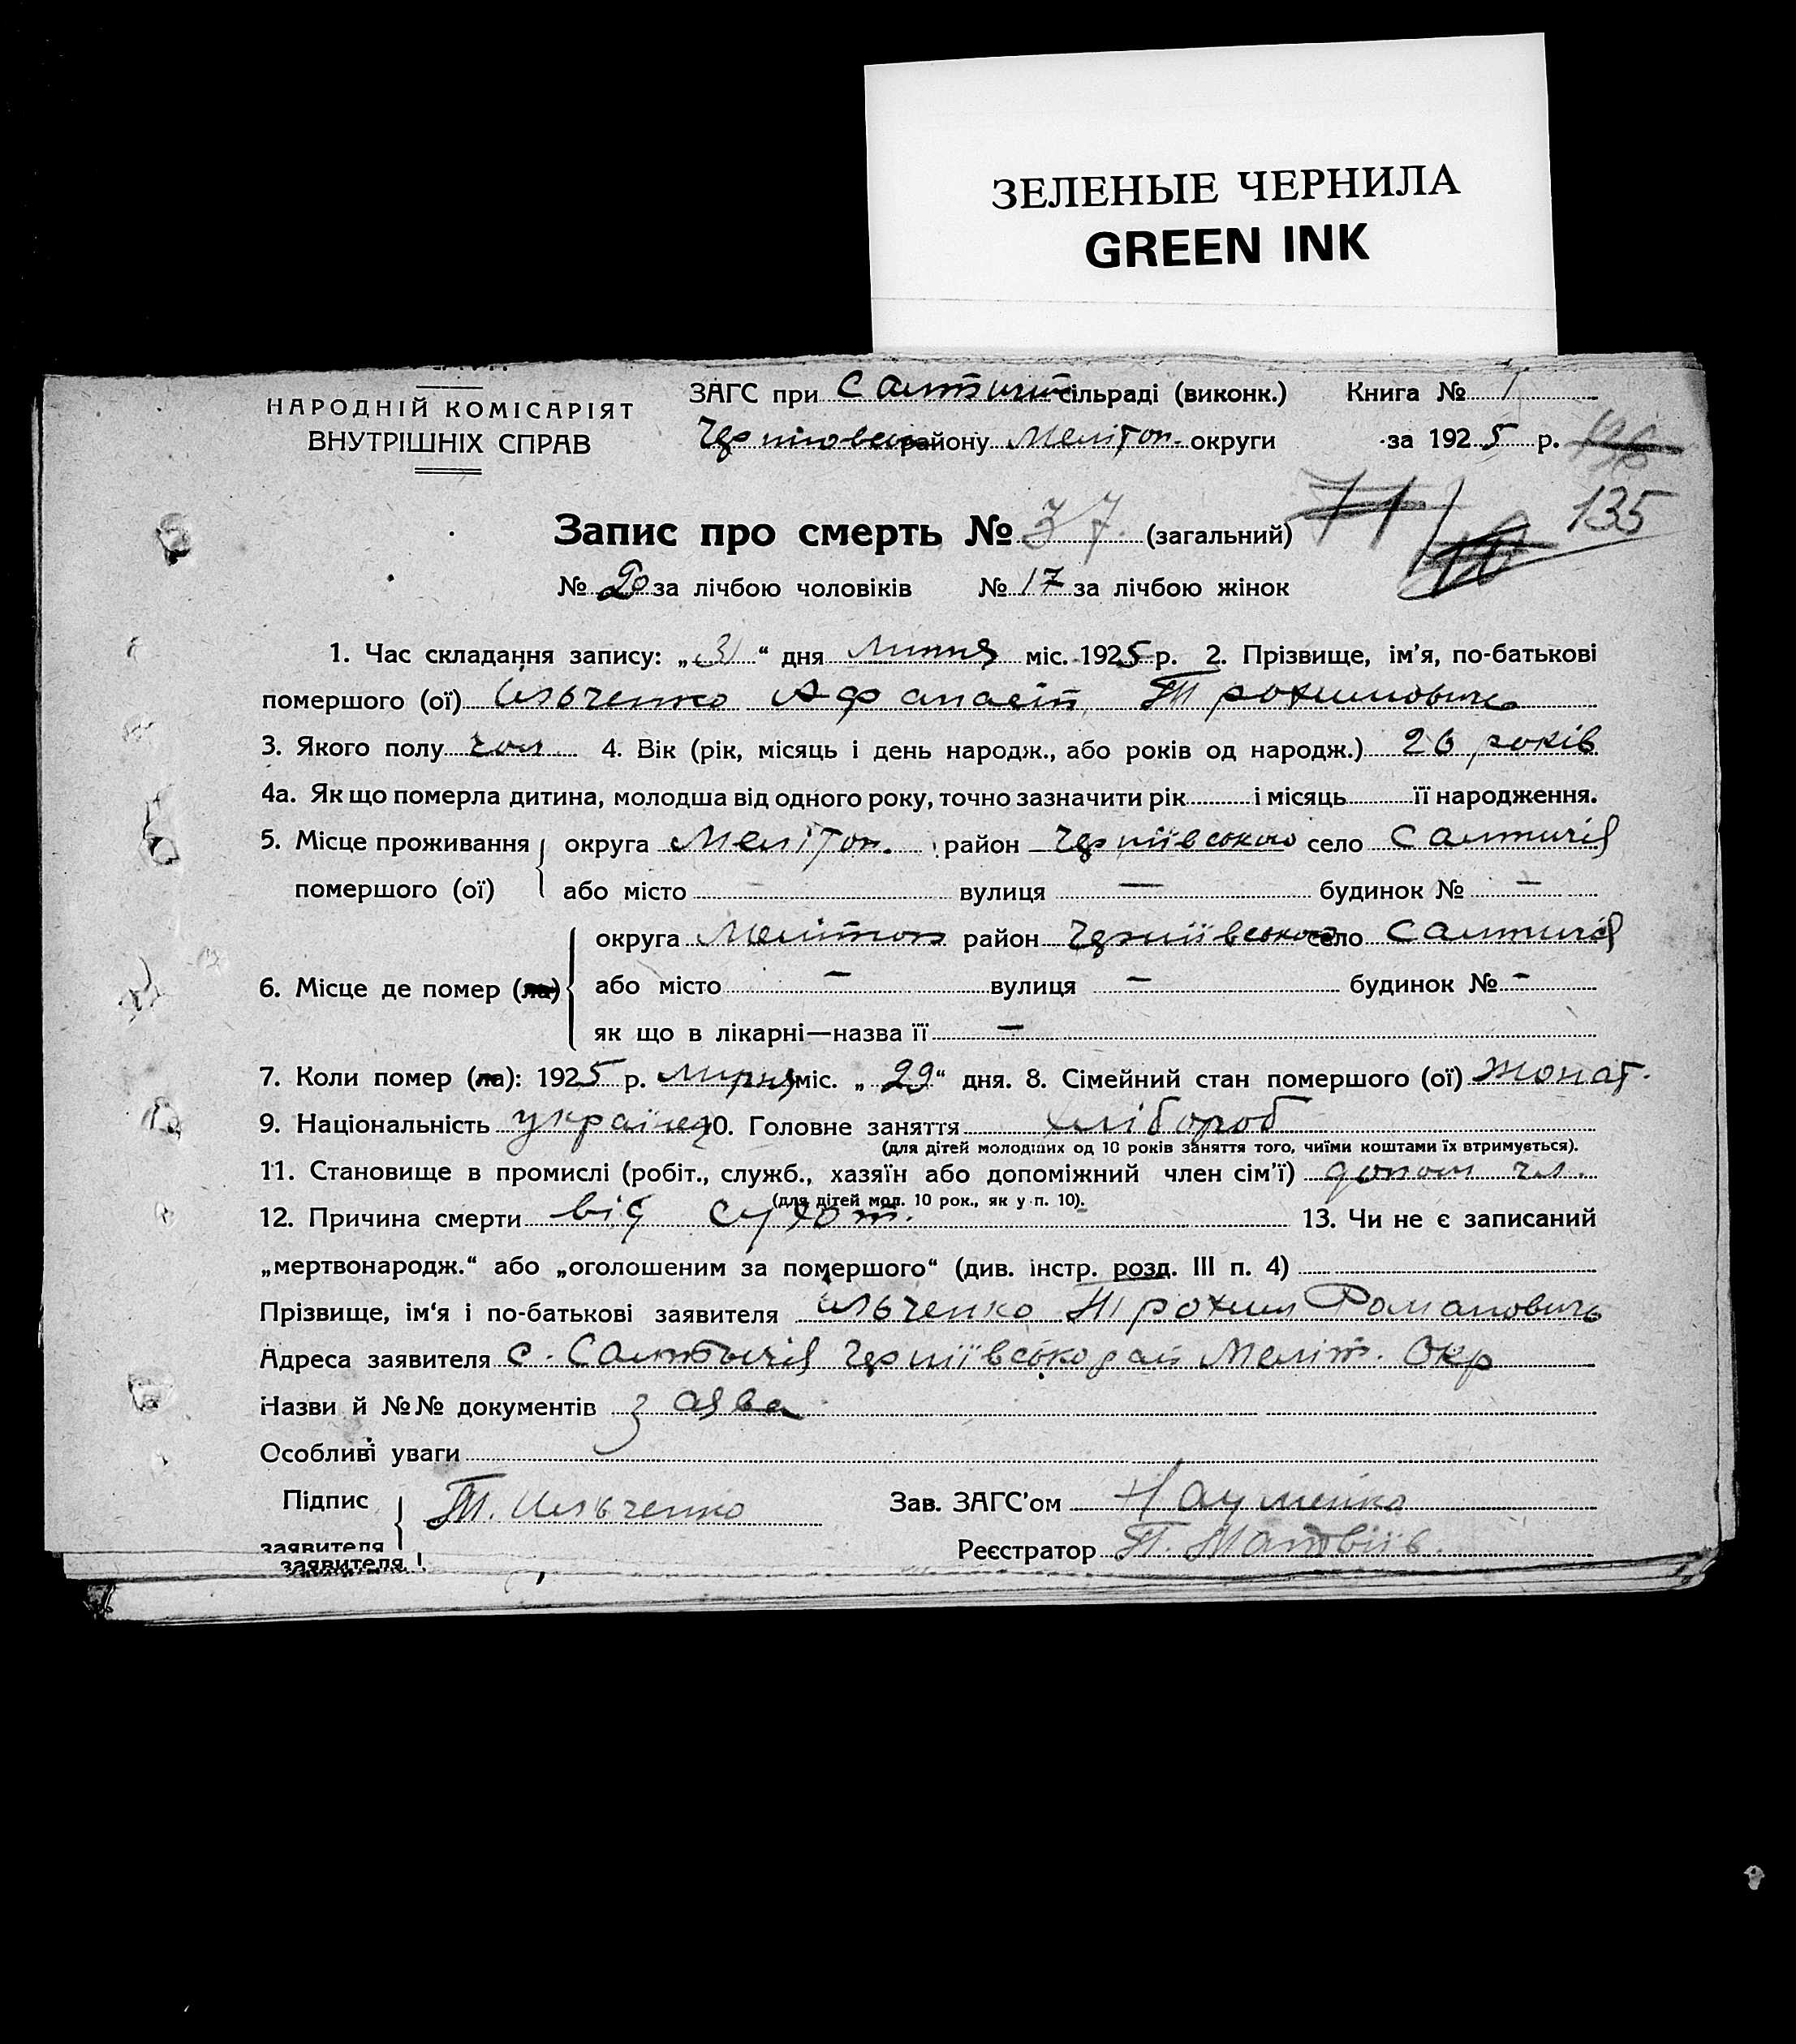 ЗЕЛЕНЫЕ ЧЕРНИЛА
GREEN INK
НАРОДНІЙ КОМІСАРІЯТ
ВНУТРІШНІХ СПРАВ
ЗАГС при Салтичій сільраді (виконк.) Книга № 1
району Мелітоп. округи за 1925 р.
135
Запис про смерть № 37 (загальний) 71
№ 20 за лічбою чоловіків № 17 за лічбою жінок
1. Час складання запису: „31“ дня липня міс. 1925 р. 2. Прізвище, ім’я, по-батькові
помершого (ої) Ильченко Афанасій Трохимовичь
3. Якого полу чол. 4. Вік (рік, місяць і день народж., або років од народж.) 26 років
4а. Як що померла дитина, молодша від одного року, точно зазначити рік і місяць її народження.
5. Місце проживання округа Мелітоп. район Черніївського село Салтичія
помершого (ої) або місто вулиця — будинок № —
округа Мелітоп район Черніївського село Салтичія
6. Місце де помер (ла) або місто — вулиця — будинок № —
як що в лікарні—назва її —
7. Коли помер (ла): 1925 р. липня міс. „29“ дня. 8. Сімейний стан помершого (ої) жонат.
9. Національність українец 10. Головне заняття хлібороб
(для дітей молодших од 10 років заняття того, чиїми коштами їх втримується).
11. Становище в промислі (робіт., служб., хазяїн або допоміжний член сім’ї) допом чл.
(для дітей мол. 10 рок., як у п. 10).
12. Причина смерти від сухот. 13. Чи не є записаний
„мертвонародж.“ або „оголошеним за помершого“ (див. інстр. розд. III п. 4)
Прізвище, ім‘я і по-батькові заявителя Ильченко Трохим Романовичь
Адреса заявителя с. Салтычія Черніївського рай Меліт. Окр
Назви й №№ документів заява
Особливі уваги
Підпис Т. Ильченко Зав. ЗАГС’ом Науменко
заявителя Реєстратор П. Матвіїв.
заявителя